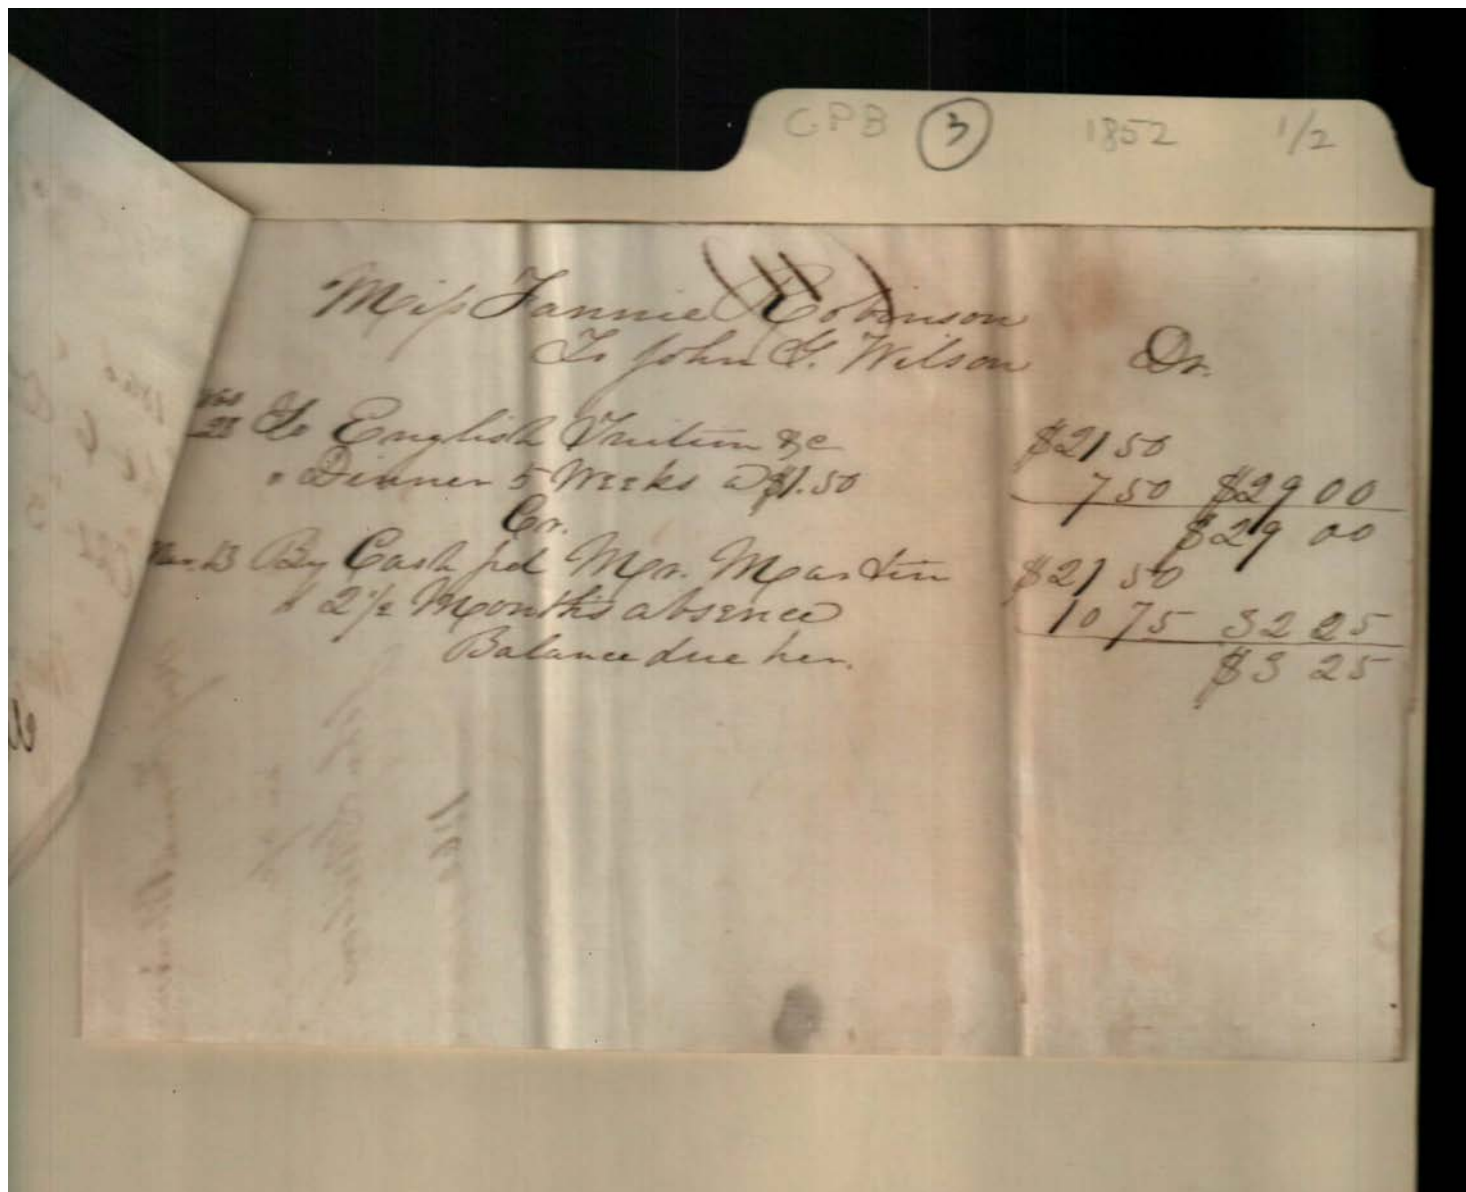 CPB 3 1852 1/2
Miss Fannie Robinson
To John G. Wilson Dr.
To English Tuition &c $21 50
" Dinner 5 Weeks @ $1.50 7 50 $29 00
Cr. $29 00
13 By Cash pd Mr. Martin $21 50
" 2 1/2 Months absence 10 75 32 25
Balance due her. $3 25